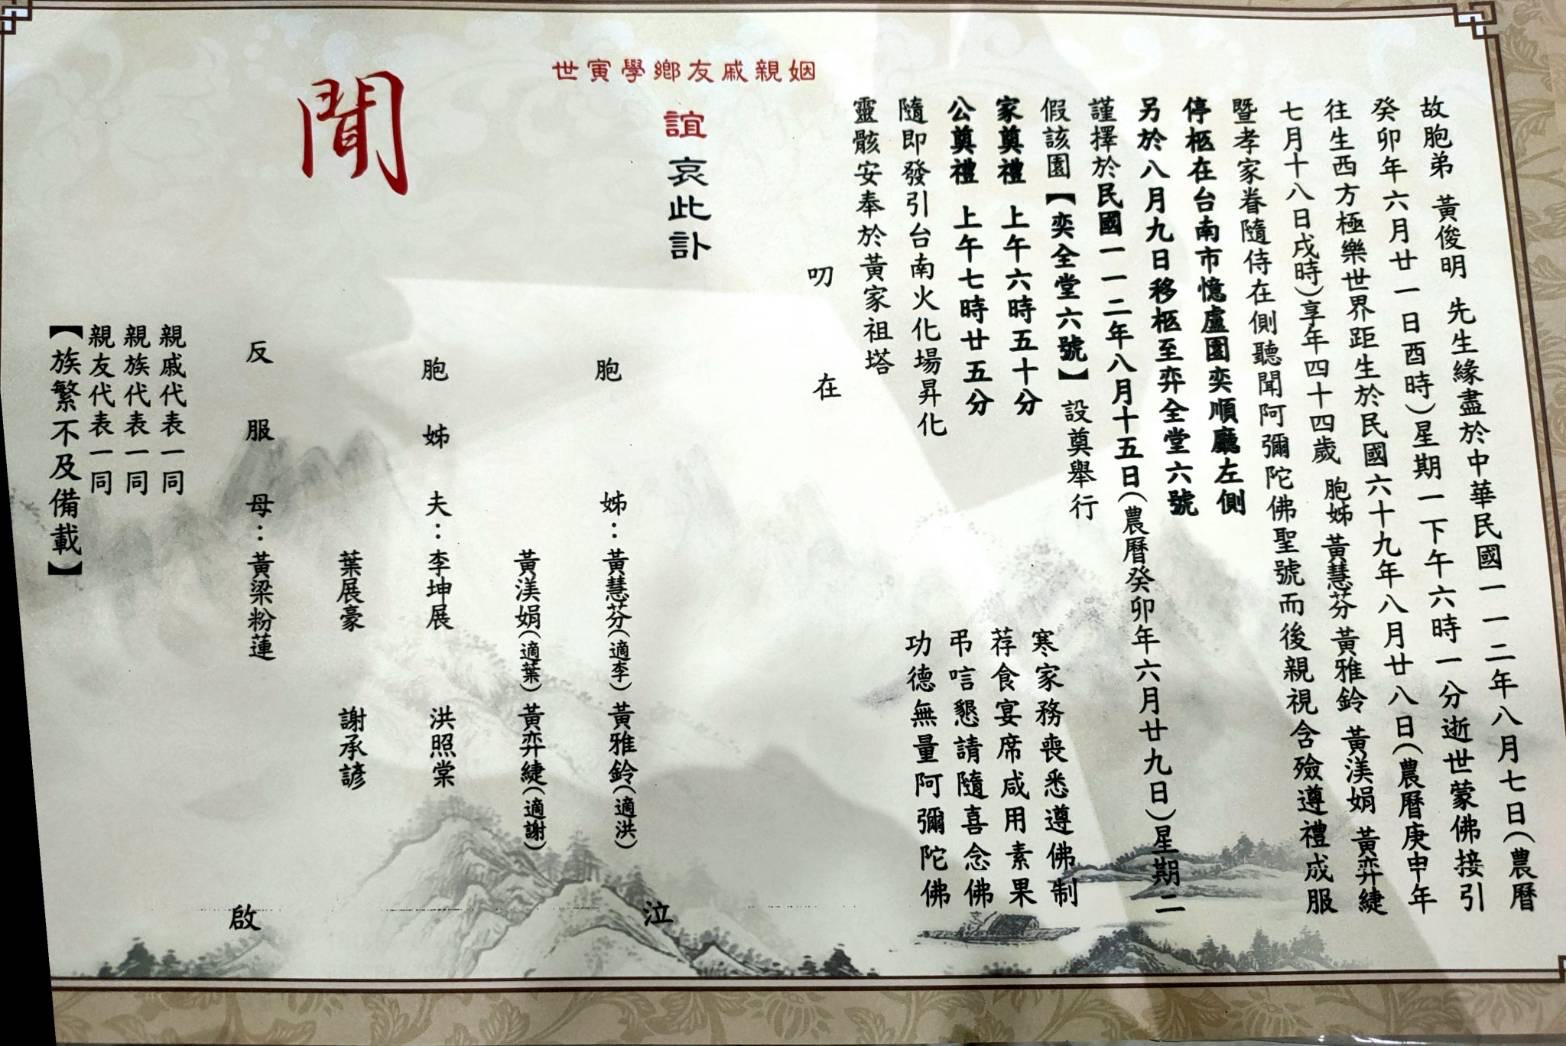 故胞弟 黃俊明 先生緣盡於中華民國一一二年八月七日(農曆
癸卯年六月廿一日酉時)星期一下午六時一分逝世蒙佛接引
往生西方極樂世界距生於民國六十九年八月廿八日(農曆庚申年
七月十八日戌時)享年四十四歲 胞姊 黃慧芬 黃雅鈴 黃渼娟 黃弈緁
暨孝家眷隨侍在側聽聞阿彌陀佛聖號而後親視含殮遵禮成服
停柩在台南市憶廬園奕順廳左側
另於八月九日移柩至弈全堂六號
謹擇於民國一一二年八月十五日(農曆癸卯年六月廿九日)星期二
假該園【奕全堂六號】設奠舉行
家奠禮 上午六時五十分
公奠禮 上午七時廿五分
隨即發引台南火化場昇化
靈骸安奉於黃家祖塔
寒家務喪悉遵佛制
荐食宴席咸用素果
弔唁懇請隨喜念佛
功德無量阿彌陀佛
叨在
姻親戚友鄉學寅世
誼哀此訃
聞
胞姊:黃慧芬(適李)黃雅鈴(適洪)
黃渼娟(適葉)黃弈緁(適謝)
胞姊夫:李坤展 洪照棠
葉展豪 謝承諺
反服母:黃梁粉蓮
泣
啟
親戚代表一同
親族代表一同
親友代表一同
【族繁不及備載】